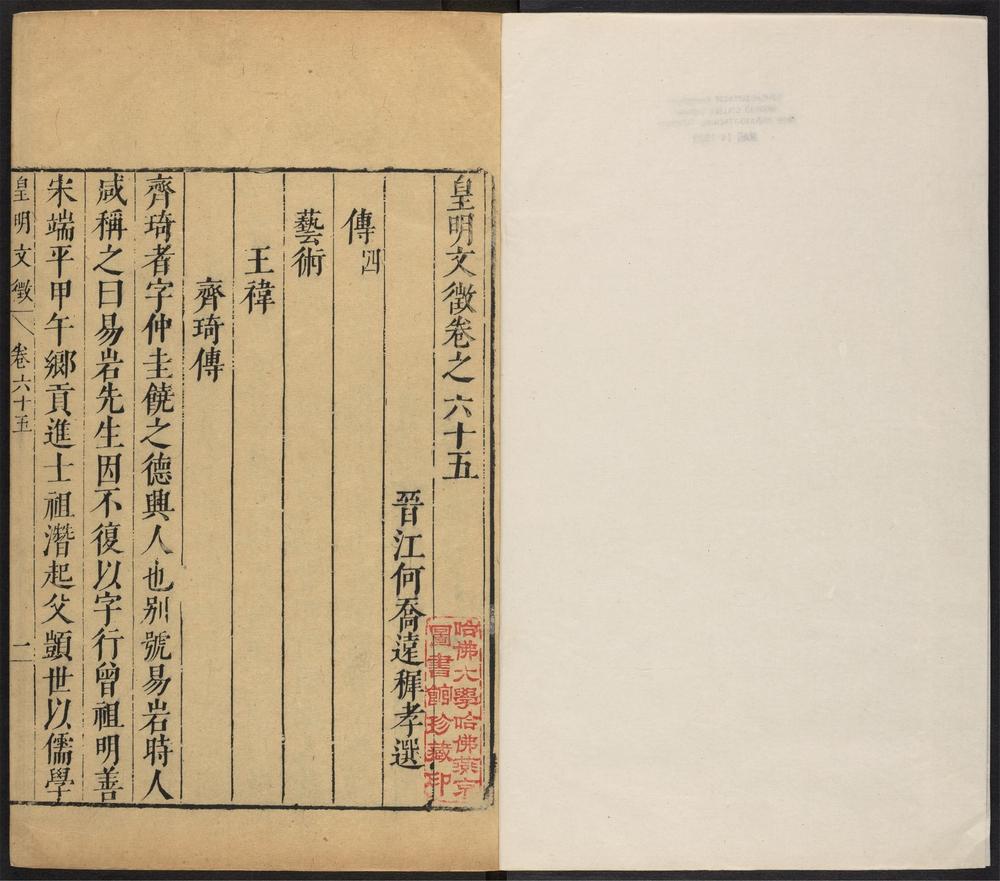 皇明文徵卷之六十五
晉江何喬遠穉孝選
傳四
藝術
王禕
齊琦傳
齊琦者字仲圭饒之德興人也别號易岩時人
咸稱之曰易岩先生因不復以字行曾祖明善
宋端平甲午鄉貢進士祖潛起父顗世以儒學
皇明文徵 卷六十五 一
哈佛大學哈佛燕京
圖書館珍藏印